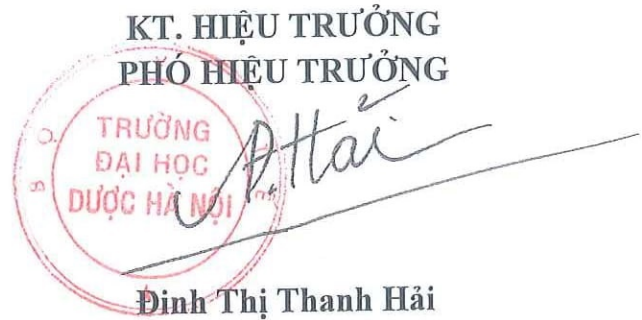 KT. HIỆU TRƯỞNG
PHÓ HIỆU TRƯỞNG
TRƯỜNG
ĐẠI HỌC
DƯỢC HÀ NỘI
Đinh Thị Thanh Hải